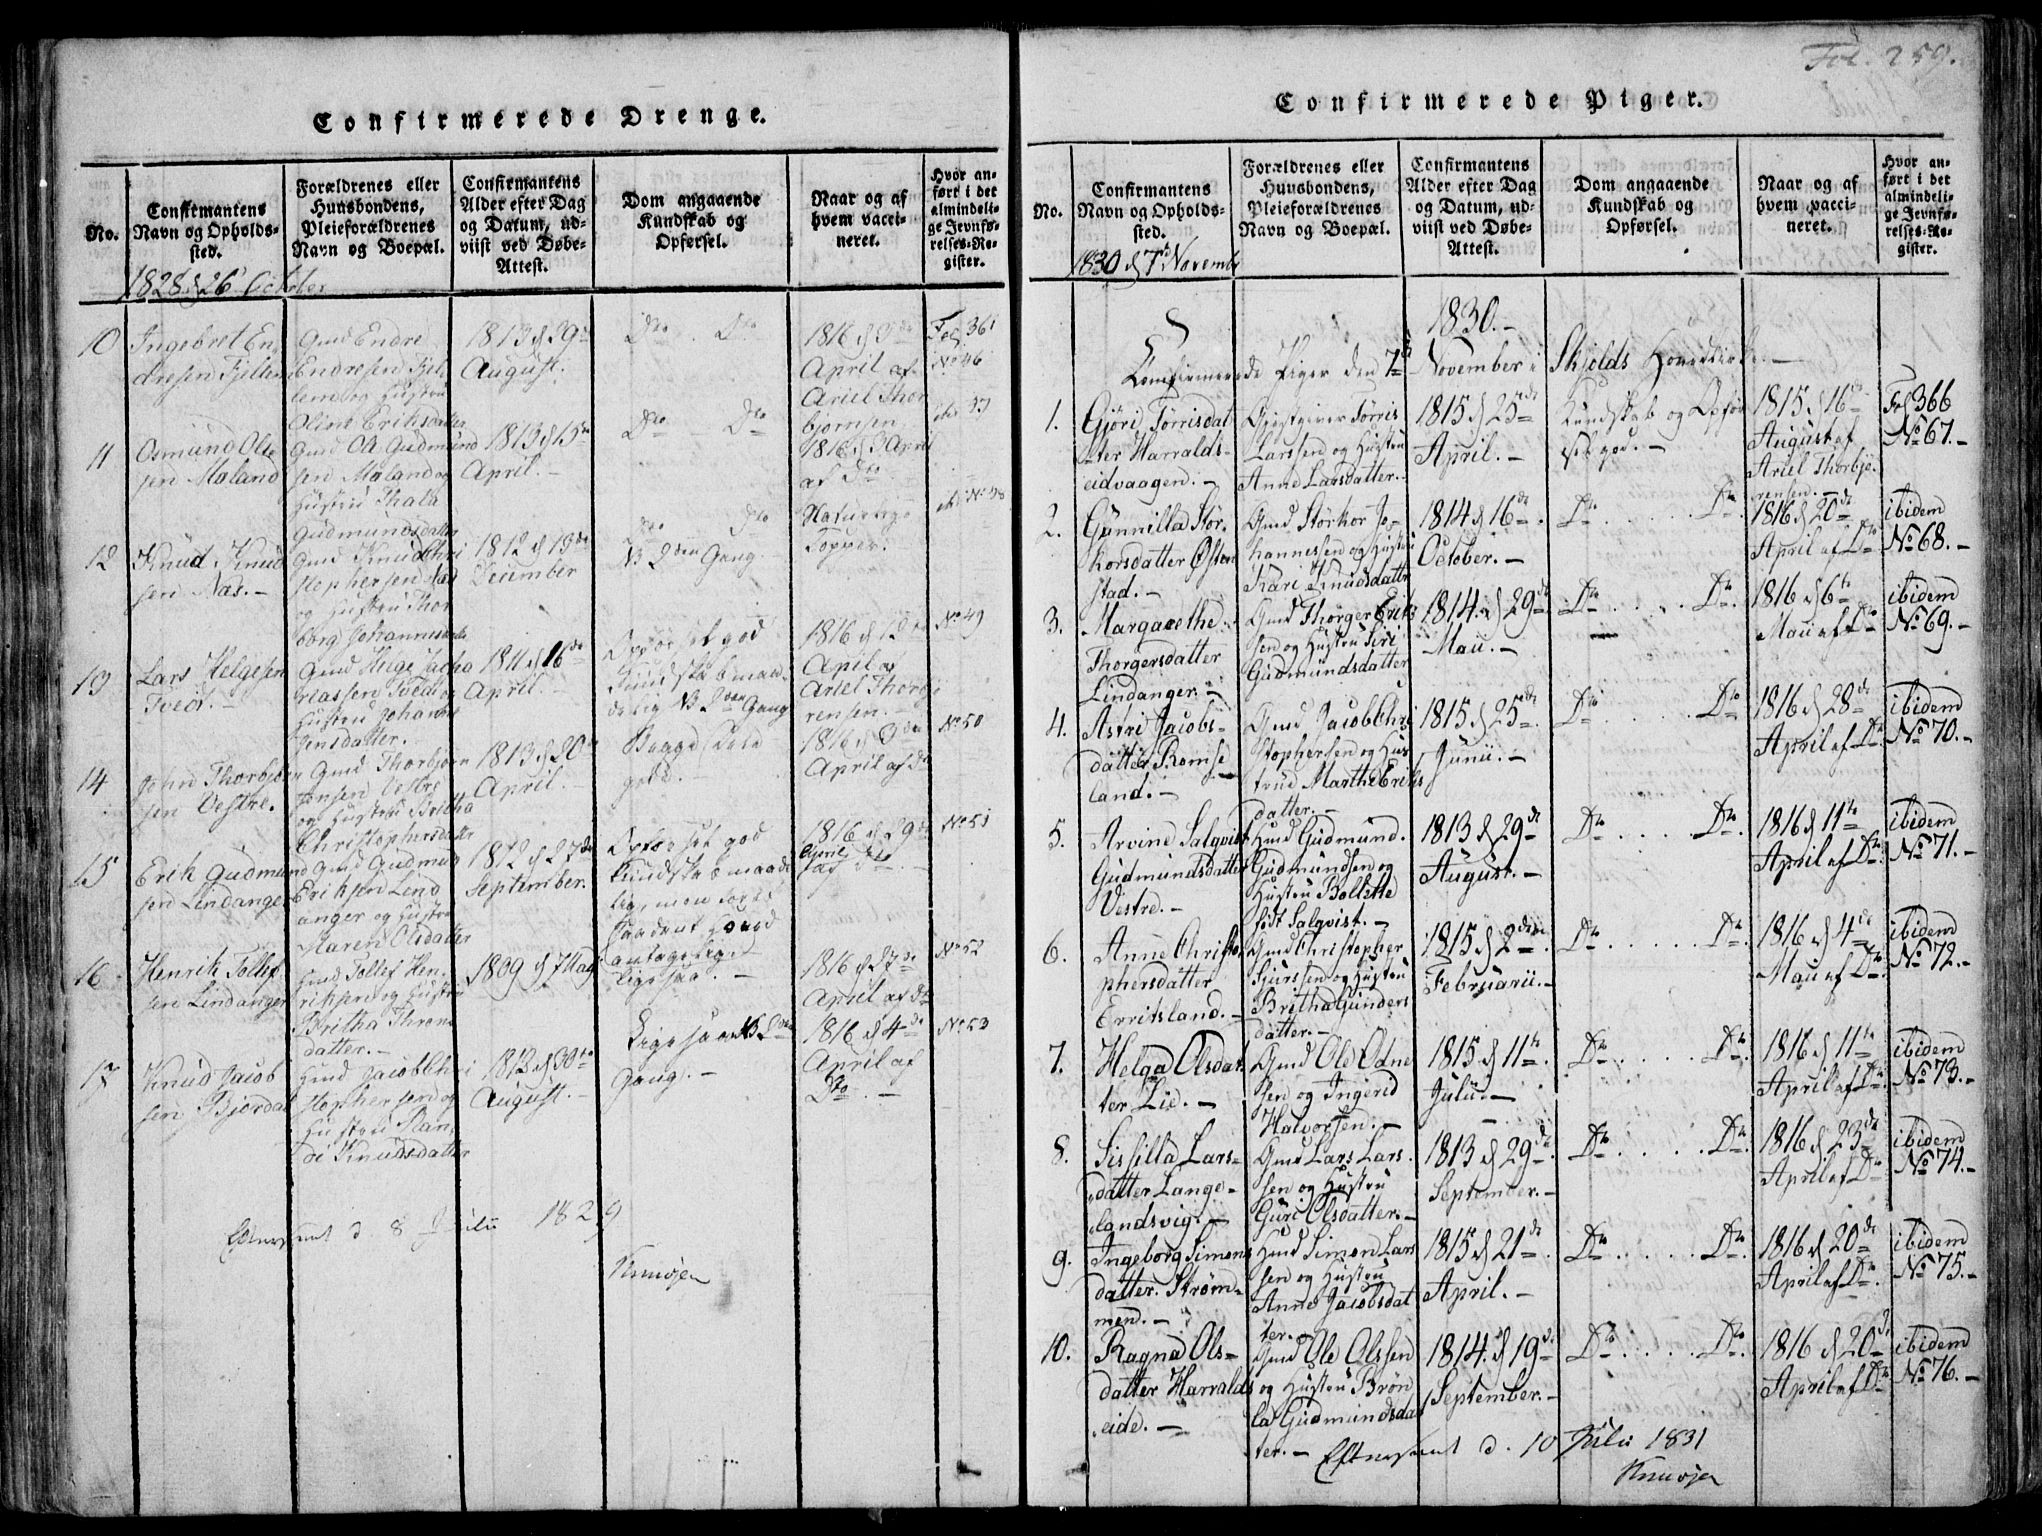 Confirmerede Drenge.
No.
Confirmantens
Navn og Opholds-
sted.
Forældrenes eller
Huusbondens,
Pleieforældrenes
Navn og Boepæl.
Confirmantens
Alder efter Dag
og Datum, ud-
viist ved Døbe-
Attest.
Dom angaaende
Kundskab og
Opførsel.
Naar og af
hvem vacci-
neret.
Hvor an-
ført i det
almindeli-
ge Jevnfø-
relses-Re-
gister.
1828 d 26 October
10
Ingebret En
dresen Fjellen
Gmd Endre
Endresen Fjel
len og Hustru
Oline Eriksdatter
1813 d 29de
August.
Dto Dto
1816 d 3de
April af
Ariel Thor
bjørnsen
Fol 361
No 46
11
Osmund Ole
sen Maland
Gmd Ole Gudmund
sen Maland og
Hustru Thala
Gudmundsdatter
1813 d 15de
April. -
Dto Dto
1816 d 3 April
af Dto
12
Knud Knud
sen Næs. -
Gmd Knud Chri
stophersen Næs
og Hustru Thor
borg Johannesdatter
1812 d 13de
December
Dto Dto
2den Gang
Naturlige
Kopper.
13
Lars Helgesen
Tvedt. -
Gmd Helge Zacha
riassen Tvedt og
Hustru Johanne
Jensdatter.
1811 d 16de
April.
Opførsel god
Kundskab maa
delig 2den Gang
1816 d 1
April af
Ariel Thorbjø
rensen. -
No 49
14
John Thorbjørn
sen Vestre.
Gmd Thorbjørn
Jonsen Vestre
og Hustru Britha
Christophersdatter
1813 d 20de
April.
Begge Dele
gode.
1816 d 3den
April af Dto
No 50
15
Erik Gudmund
sen Lindanger
Gmd Gudmund
Eriksen Lind
anger og Hustru
Maren Olsdatter
1812 d 27de
September.
Opførsel god
Kundskab maade
lig, men
antagelig
1816 d 29de
April
af Dto
No 51
16
Henrik Tollef
sen Lindanger
Hmd Tollef Hen
riksen og Hustru
Britha Thrond
datter. -
1809 d 7 Maj
ligesaa. -
1816 d 27de
April af Dto
No 52
17
Knud Jacob
sen Bjordal
Hmd Jacob Chri
stophersen og
Hustru Ran
di Knudsdatter
1812 d 30te
August. -
Ligesaa 2den
Gang. -
1816 d 4de
April af
Dto. -
No 53
Efterseet d. 8 Julii 1829
Confirmerede Piger.
Fol. 259.
No.
Confirmantens
Navn og Opholds-
sted.
Forældrenes eller
Huusbondens,
Pleieforældrenes
Navn og Boepæl.
Confirmantens
Alder efter Dag
og Datum, ud-
viist ved Døbe-
Attest.
Dom angaaende
Kundskab og
Opførsel.
Naar og af
hvem vacci-
neret.
Hvor an-
ført i det
almindeli-
ge Jevnfø-
relses-Re-
gister.
1830 d 7de Novembr
1830. -
Confirmerede Piger den 7de November i Skjolds Hovedkirke. -
1.
Gjøri Tørrisdat
ter Harralds-
eidvaagen. -
Gjestgiver Tørris
Larssen og Hustru
Anne Larsdatter. -
1815 d 25de
April. -
Kundskab og Opfør
sel god. -
1815 d 16de
August af
Ariel Thorbjø-
rensen. -
Fol 366
No 67. -
2.
Gunnilla Stør-
korsdatter Østen
stad. -
Gmd Størkor Jo-
hannessen og Hustru
Kari Knudsdatter
1814 d 16de.
October. -
Dto . . . . Dto
1816 d 20de
April af Dto
ibidem
No 68. -
3.
Margarethe
Thorgersdatter
Lindanger. -
Gmd Thorger Erik
sen og Hustru Siri
Gudmundsdatter
1814 d 29de
Maii. -
Dto . . . . Dto
1816 d 6te
Maii af Dto
ibidem
No 69. -
4.
Astri Jacobs-
datter Romse
land. -
Gmd Jacob Chri
stophersen og Hus
true Marthe Eriks
datter. -
1815 d 25de
Junii. -
Dto . . . . Dto
1816 d 28de
April af Dto
ibidem
No 70. -
5.
Arvine Salqvist
Gudmundsdatter
Vestre. -
Hmd Gudmund
Gudmundsen og
Hustru Bolette
født Salqvist. -
1813 d 29de
August. -
Dto . . . . Dto
1816 d 11te
April af Dto
ibidem
No 71. -
6.
Anne Christo
phersdatter
Erritsland. -
Gmd Christopher
Sjurssen og Hustru
Britha Gunders
datter. -
1815 d 2den
Februarii. -
Dto . . . . Dto
1816 d 4de
Mai af Dto
ibidem
No 72. -
7.
Helga Olsdat
ter Lie. -
Gmd Ole Odne
sen og Ingerid
Halvorsen. -
1815 d 11te
Julii. -
Dto . . . . Dto
1816 d 11te
April af Dto
ibidem
No 73. -
8.
Sissilla Lars-
datter Lange-
landsvig. -
Gmd Lars Lars
sen og Hustru
Guri Olsdatter. -
1813 d 29de
September. -
Dto . . . . Dto
1816 d 23de
April af Dto
ibidem
No 74. -
9.
Ingeborg Simons
datter Strøm-
men. -
Hmd Simon Lars
sen og Hustru
Anne Jacobsdat
ter. -
1815 d 21de
April. -
Dto . . . . Dto
1816 d 20de
April af Dto
ibidem
No 75. -
10.
Ragna Ols-
datter Harralds
eide. -
Gmd Ole Olssen
og Hustru Brøn
la Gudmundsdat
ter. -
1814 d 19de
September. -
Dto . . . . Dto
1816 d 20de
April af Dto
ibidem
No 76. -
Efterseet d. 10 Julii 1831